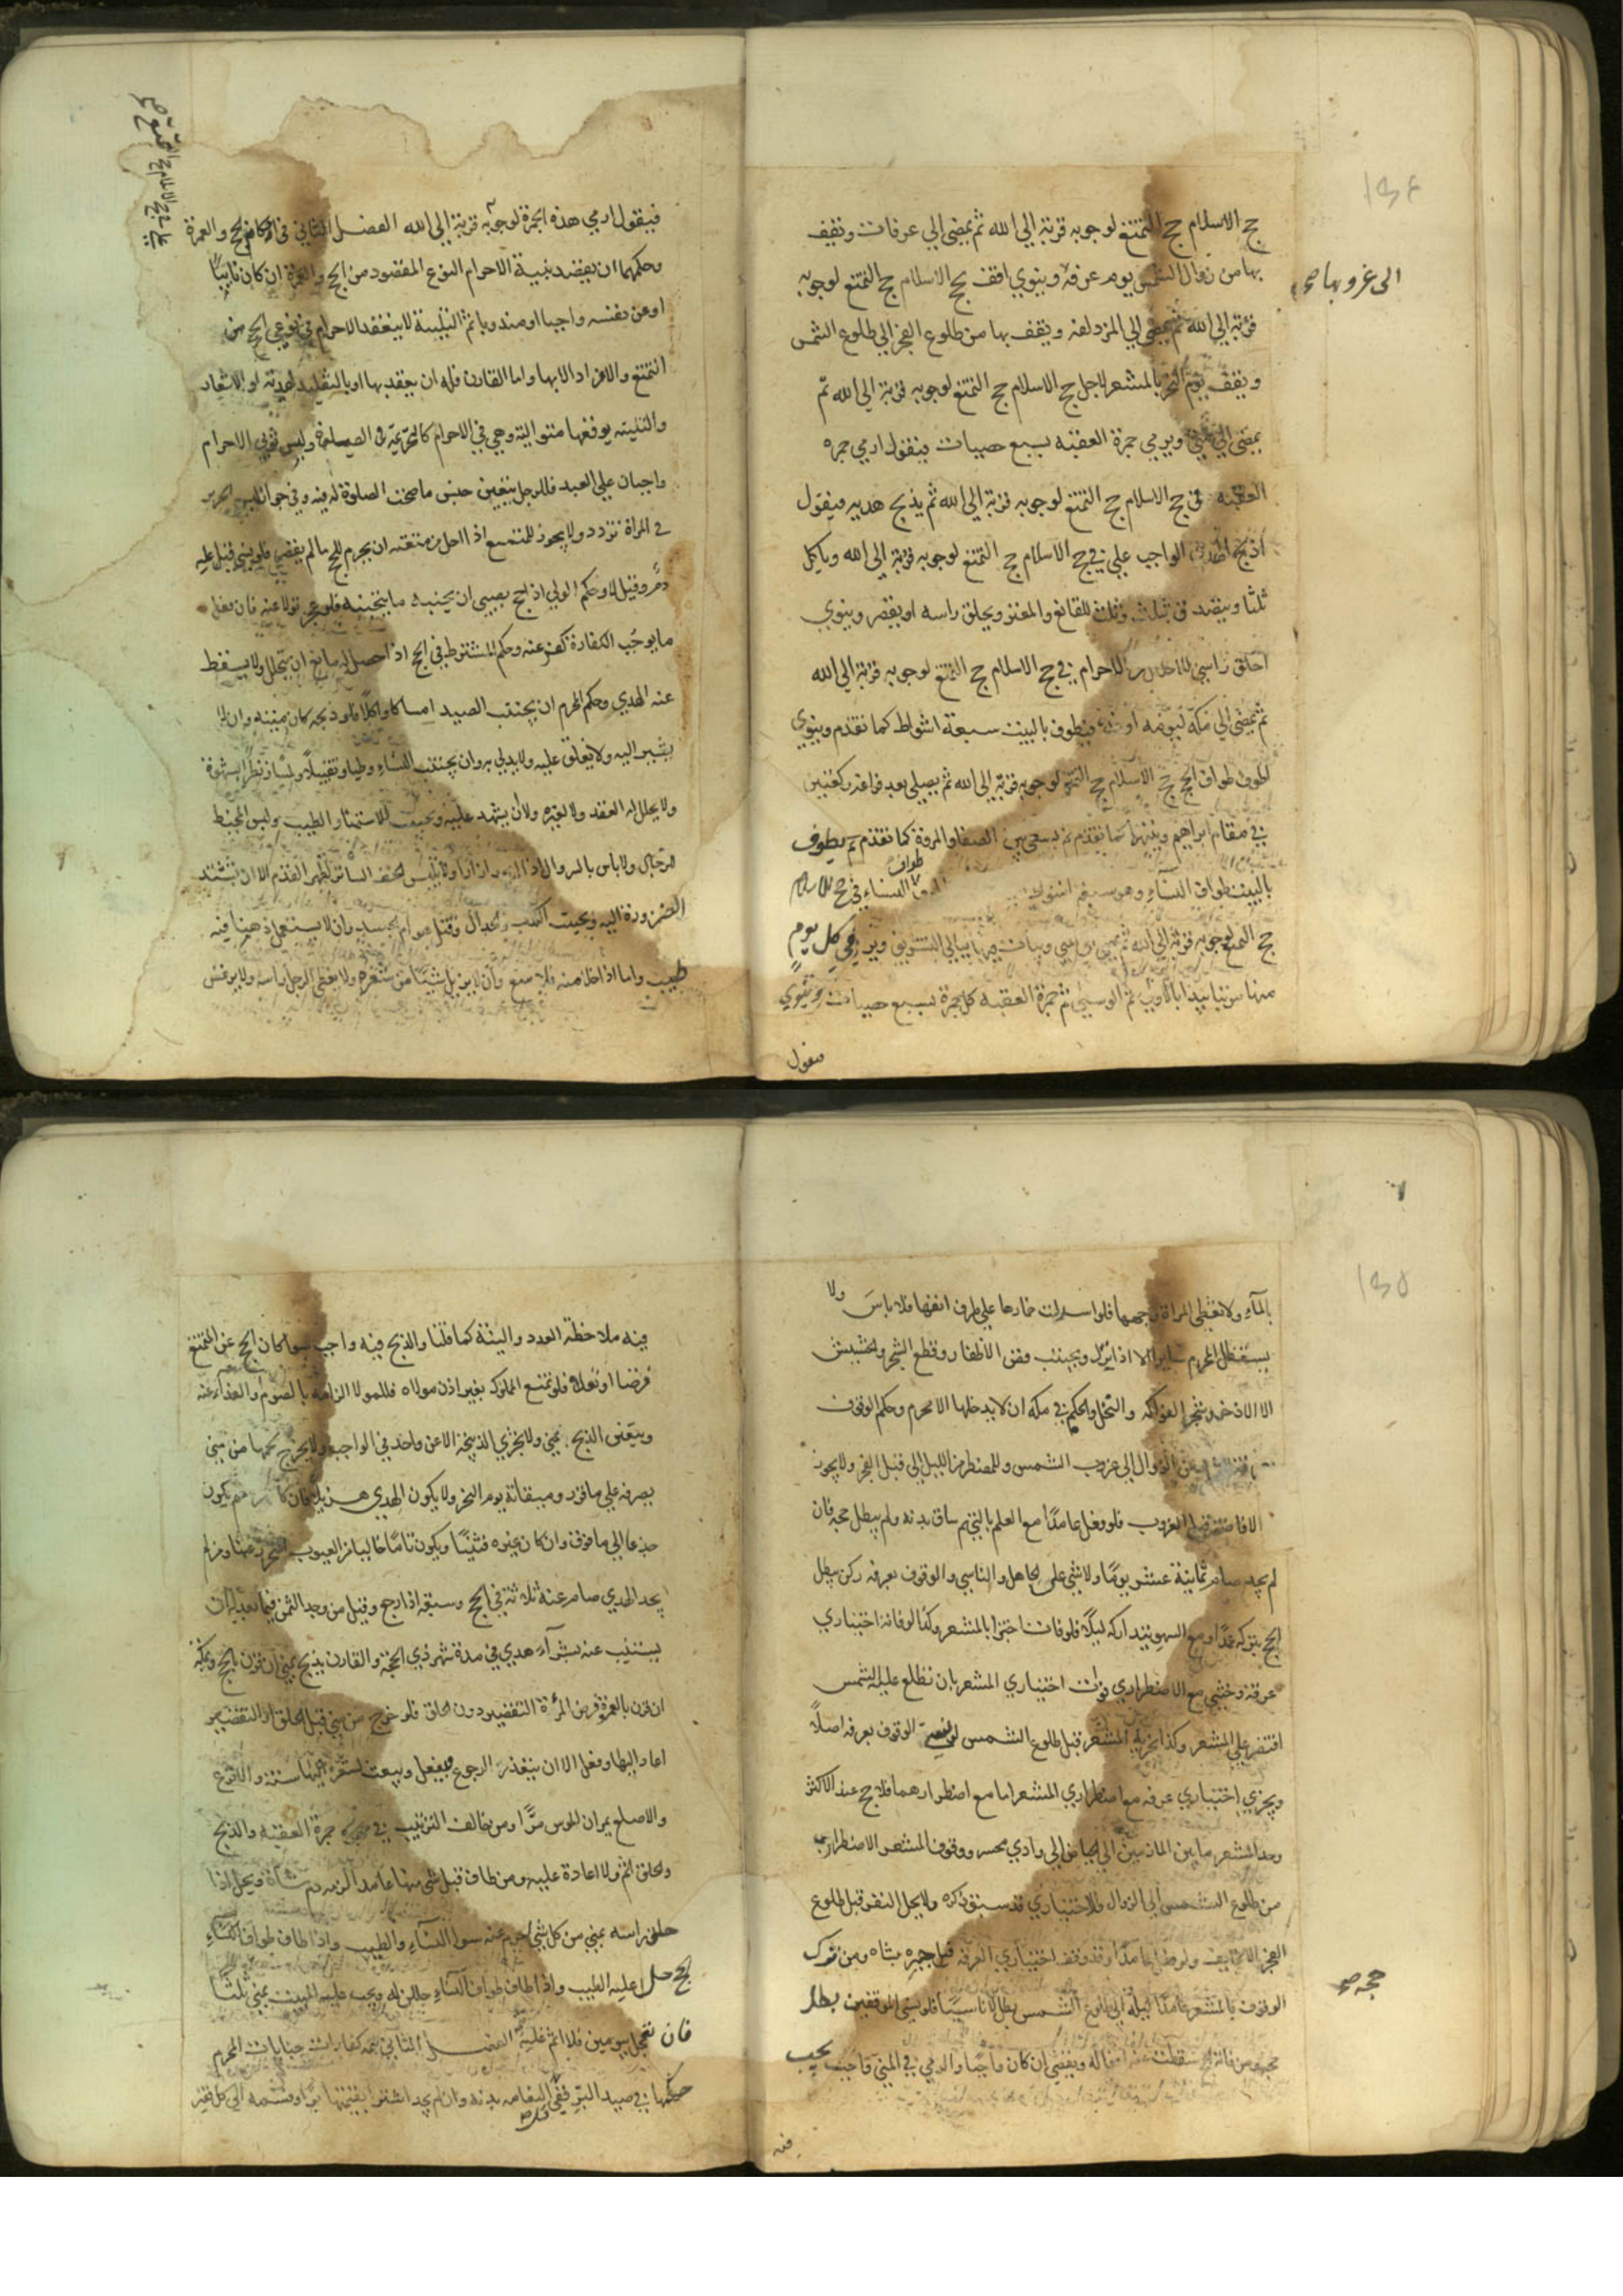 ١٣٤
حج الاسلام حج التمتع لوجوبه قربة الى الله ثم يمضى الى عرفات ونقف
الى غروبها صح
بها من زوال الشمس يوم عرفة وينوي اقف بحج الاسلام حج التمتع لوجوبه
قربة الى الله ثم يمضى الى المزدلفه ويقف بها من طلوع الفجر الى طلوع الشمس
ونقف يوم النحر بالمشعر لاجل حج الاسلام حج التمتع لوجوبه قربة الى الله ثم
يمضى الى منى ويرمي جمرة العقبه بسبع حصيات فيقول ارمي جمره
العقبه في حج الاسلام حج التمتع لوجوبه قربة الى الله ثم يذبح هديه فيقول
اذبح الهدي الواجب علي في حج الاسلام حج التمتع لوجوبه قربة الى الله وياكل
ثلثا ويتصد في ثلث وثلث للقانع والمعتر ويحلق راسه او يقصر وينوي
احلق راسي للاحلال من الاحرام في حج الاسلام حج التمتع لوجوبه قربة الى الله
ثم يمضى الى مكة ليومه او غده فيطوف بالبيت سبعة اشواط كما تقدم وينوي
اطوف طواف الحج حج الاسلام حج التمتع لوجوبه قربة الى الله ثم يصلى بعد فراغه ركعتين
في مقام ابراهيم كما تقدم ثم يسعى بين الصفا والمروة كما تقدم ثم يطوف
بالبيت طواف النساء وهو سبعة اشواط طواف النساء في حج الاسلام
حج التمتع لوجوبه قربة الى الله ثم يمضي الى منى ويبات بها ليالي التشريق ويرمي كل يوم
منها بالاولى ثم الوسطى ثم جمرة العقبه كل جمرة بسبع حصيات وينوي
فيقول
فيقول ارمي هذه الجمرة لوجوبه قربة الى الله الفصل الثاني في احكام الحج والعمرة
وحكمهما ان يقصد بنية الاحرام النوع المقصود من الحج والعمرة ان كان نايبا
او عن نفسه واجبا او مندوبا ثم التلبية لا ينعقد الاحرام في نوعي الحج من
التمتع والافراد الا بها واما القارن فله ان يعقد بها او بالتقليد لهديه او الاشعار
والتلبيه يوقعها متوالية وهي في الاحرام كالتحريمة في الصلوة ولبس ثوبي الاحرام
واجبان علي العبد فللرجل يتعين جنس ما صحت الصلوة له فيه وفي جواز لبس الحرير
في المراة تردد ولا يجوز للمتمتع اذا احل من متعته ان يحرم للحج ما لم يقصر فلو نسي قبل عليه
دم وقيل لا وحكم الولي اذ احج بصبي ان يجنبه ما يتجنبه فلو عجز تولا عنه فان فعل
ما يوجب الكفارة كفر عنه وحكم المشترط في الحج اذا حصل له مانع ان يتحلل ولا يسقط
عنه الهدي وحكم المحرم ان يجتنب الصيد امساكا واكلا فلو ذبحه كان ميتة وان لا
يشير اليه ولا يغلق عليه ولا يدلي به وان يجتنب النساء وطيا وتقبيلا ولمسا ونظرا بشهوة
ولا يحل له العقد ولا لغيره ولا ان يشهد عليه ويجتنب الاستمنا والطيب ولبس المخيط
للرجال ولا باس بالسروال اذا ازارا ولا يلبس الخف الساتر لظهر القدم الا ان تشتد
الضرورة اليه ويجتنب الكذب والجدال وقتل هوام الجسد وان لا يستعمل دهنا فيه
طيب واما اذا خلا منه فلا منع وان لا يزيل شيئا من شعره ولا يغطى الرجل راسه ولا يرتمس
١٣٥
بالماء ولا تغطى المراة وجهها فلو اسدلت خمارها علي طرف انفها فلا باس ولا
يستظل المحرم سايرا الا اذا نزل ويجتنب وقص الاظفار وقطع الشجر والحشيش
الا الاذخر وشجر الفواكه والنخل والحكم في مكه ان لا يدخلها الا محرم وحكم الوقوف
من الزوال الى غروب الشمس وللمضطر من الليل الى قبل الفجر ولا يجوز
الافاضه قبل الغروب فلو فعل عامدا مع العلم بالتحريم ساق بدنه ولم يبطل حجه فان
لم يجد صام ثمانية عشر يوما ولا شي على الجاهل والناسي والوقوف بعرفه ركن يبطل
الحج بتركه عمدا ومع السهو يتداركه ليلا فلو فات اجتزا بالمشعر وكذا لو فاته اختياري
عرفه وخشي مع الاضطراري فوات اختياري المشعر بان تطلع عليه الشمس
اقتصر علي المشعر وكذا يجزيه المشعر قبل طلوع الشمس الوقوف بعرفه اصلا
ويجزي اختياري عرفه مع اضطراري المشعر اما مع اضطرارهما فلا حج عند الاكثر
وحد المشعر ما بين المازمين الى الحياض الى وادي محسر ووقوف المشعر الاضطراري
من طلوع الشمس الى الزوال والاختياري قد سبق ذكره ولا يحل النفر قبل طلوع
الفجر الا لخايف ولو فعل عامدا وقد وقف اختياري العرفه جبره بشاه ومن ترك
حجه صح
الوقوف بالمشعر عامدا ليله الى طلوع الشمس بطل لا ناسيا فلو نسي الموقفين بطل
حجه ومن فاته الحج سقطت عنه افعاله ويقضي ان كان واجبا والرمي في المنى واجب يجب
فيه
فيه ملاحظة العدد والنية كما قلنا والذبح فيه واجب سوا كان الحج عن المتمتع
فرضا او نفلا فلو تمتع المملوك بغير اذن مولاه فللمولا الزامه بالصوم والفداء عنه
ويتعين الذبح بمنى ولا يجزي الذبيحة الا عن واحد في الواجب ولا يخرج لحمها من منى
يصرفه علي ما قرر وميقاته يوم النحر ولا يكون الهدي هزيلا فان كان من غنم يكون
جذعا الى ما فوق وان كان غيره فثنيا ويكون تاما خاليا من العيوب ومن لم
يجد الهدي صام عنه ثلاثة في الحج وسبعة اذا رجع وقيل من وجد الثمن
يستنيب عنه بشراء هدي في مدة شهر ذي الحجة والقارن يذبح بمنى ان قرن بالحج وبمكة
ان قرن بالعمرة وفرض المرءة التقصير دون الحلق فلو خرج من منى قبل الحلق او التقصير
اعاد اليها وفعل الا ان يتعذر الرجوع فيفعل ويبعث بشعره اليها سنة والاقرع
والاصلع يمران الموس مرا ومن خالف الترتيب في جمرة العقبه والذبح
والحلق اثم ولا اعادة عليه ومن طاف قبل شي منها عامدا الزم دم شاة ويحل اذا
حلق راسه بمنى من كل شي احرم عنه سوا النساء والطيب واذا طاف طواف
الحج حل عليه الطيب واذا طاف طواف النساء حللن له ويجب عليه المبيت بمنى ثلثا
فان تعجل بيومين فلا اثم عليه الفصل الثاني كفارات جنايات المحرم
حكمها في صيد البر ففي النعامه بدنه وان لم يجد اشترا بقيمتها برا وقسمه الى كل فقير